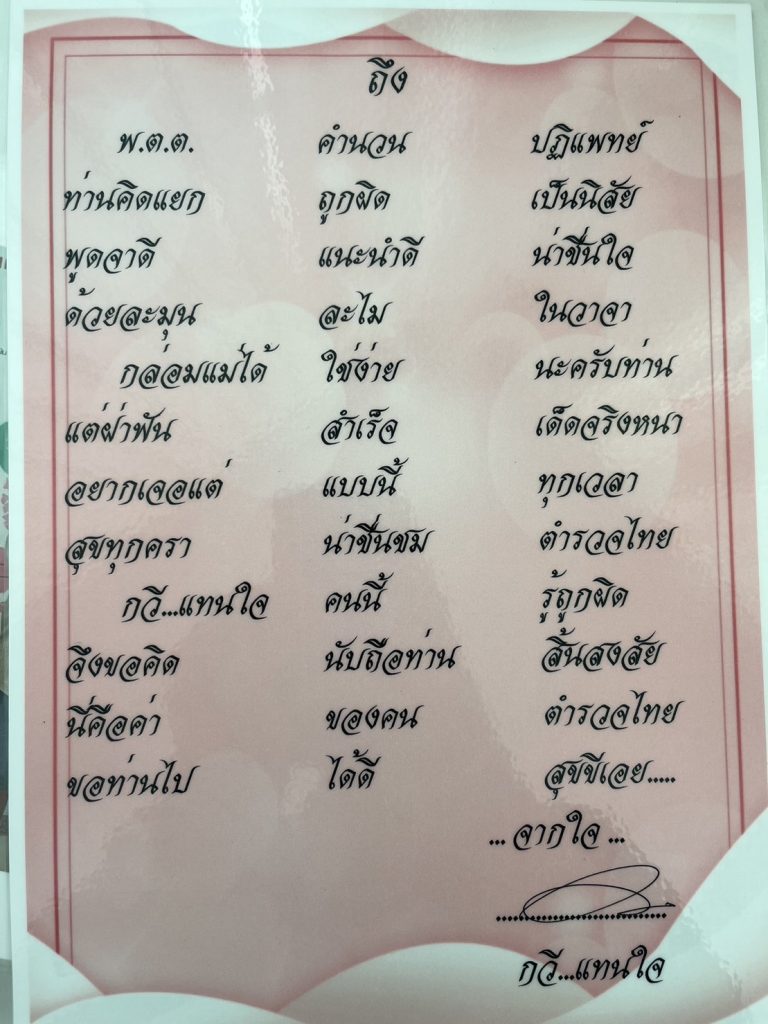 ถึง
พ.ต.ต. คำนวน ปฏิแพทย์
ท่านคิดแยก ถูกผิด เป็นนิสัย
พูดจาดี แนะนำดี น่าชื่นใจ
ด้วยละมุน ละไม ในวาจา
กล่อมแม่ได้ ใช่ง่าย นะครับท่าน
แต่ฝ่าฟัน สำเร็จ เด็ดจริงหนา
อยากเจอแต่ แบบนี้ ทุกเวลา
สุขทุกครา น่าชื่นชม ตำรวจไทย
กวี...แทนใจ คนนี้ รู้ถูกผิด
จึงขอคิด นับถือท่าน สิ้นสงสัย
นี่คือค่า ของคน ตำรวจไทย
ขอท่านไป ได้ดี สุขขีเอย.....
... จากใจ ...
กวี...แทนใจ